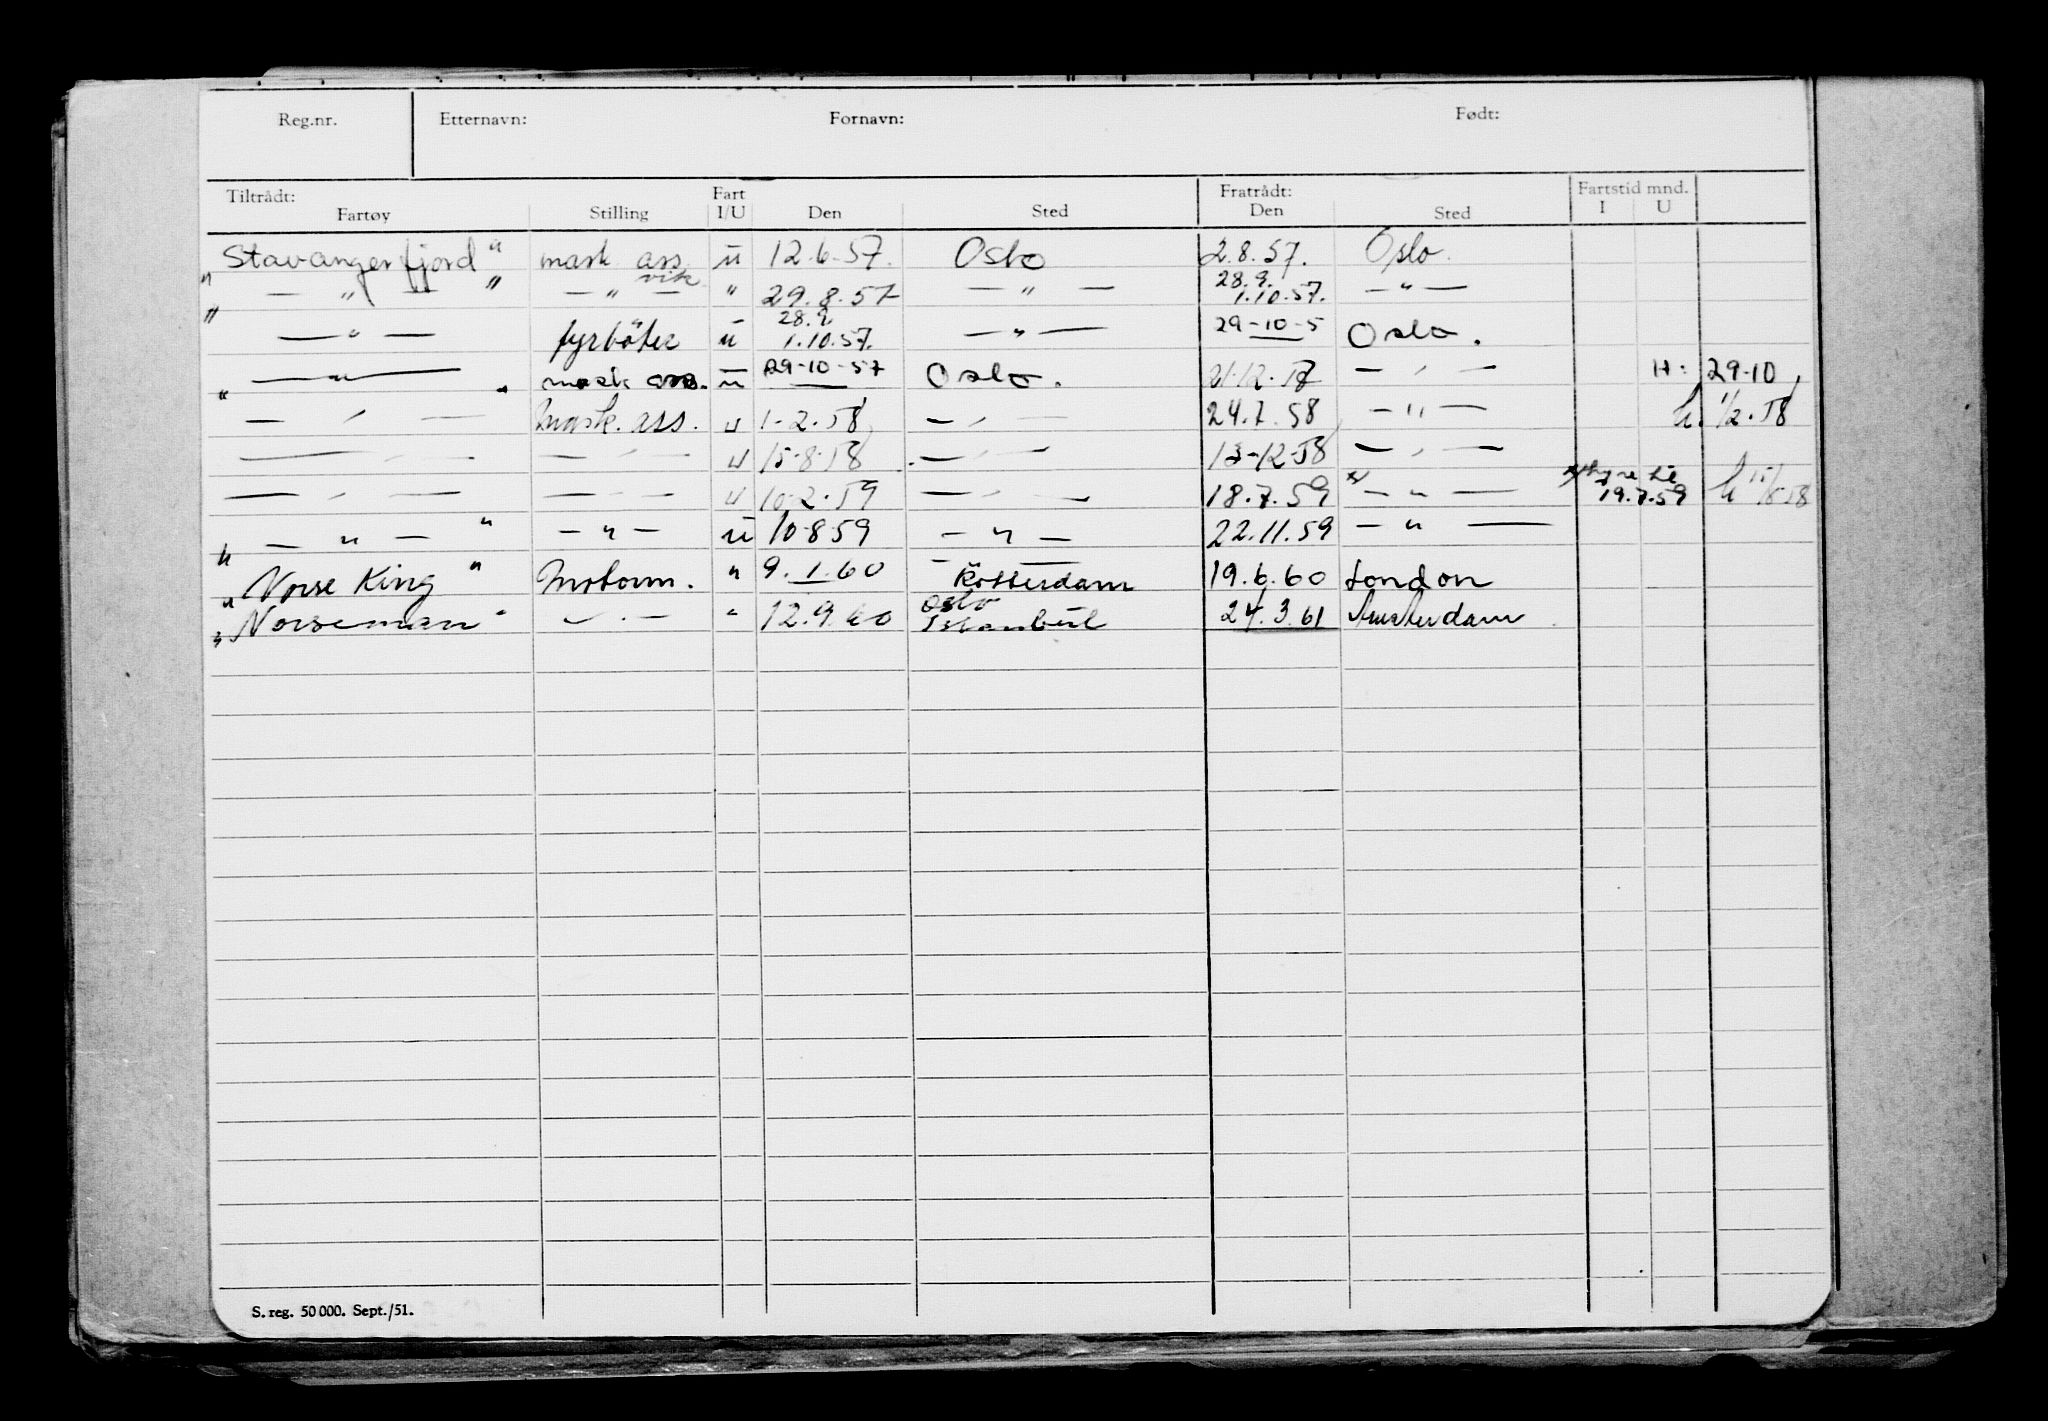 Reg.nr. Etternavn: Fornavn: Født:
Tiltrådt: Fart Fratrådt: Fartstid mnd.
Fartøy Stilling I/U Den Sted Den Sted I U
"Stavangerfjord" mask. ass. u 12.6.57. Oslo 2.8.57. Oslo.
" — " — " — " — vik " 29.8.57 — " — 28.9. 1.10.57. — " —
— " — fyrbøter u 28.9 1.10.57. — " — 29-10-5 Oslo.
" — " — " mask ass. u 29-10-57 Oslo. 21-12-57 — " — H: 29-10
— " — Mask. ass. u 1-2.58 — " — 24.7.58 — " — h. 1/2.58
— " — — " — u 15-8-58 — " — 13-12-58 — " —
— " — — " — u 10-2.59 — " — 18.7.59 x) — " — x) hyre til 19.7.59 h 15/8 58
" — " — " — " — u 10-8-59 — " — 22.11.59 — " —
"Norse King" Motorm. " 9.1.60 Rotterdam 19.6.60 London
"Norseman" — " — " 12.9.60 Oslo Istanbul 24.3.61 Amsterdam
S. reg. 50 000. Sept./51.